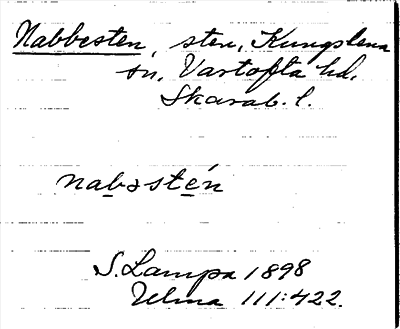 Nabbesten, sten, Kungslena
sn, Vartofta hd,
Skarab. l.
nabəsté̱n
S. Lampa 1898
Ulma 111:422.